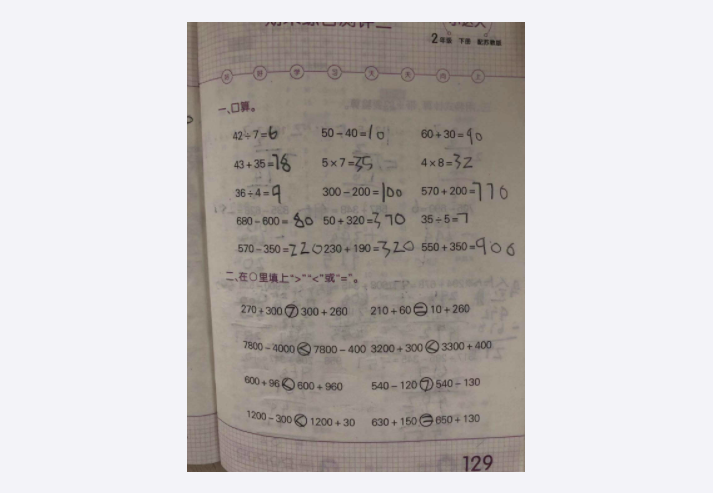 2年级 下册 配苏教版
天天
一、口算。
42÷7=6 50-40=10 60+30=90
43+35=78 5×7=35 4×8=32
36÷4=9 300-200=100 570+200=770
680-600=80 50+320=370 35÷5=7
570-350=220 230+190=320 550+350=900
二、在○里填上“>”“<”或“=”。
270+300>300+260 210+60=10+260
7800-4000<7800-400 3200+300<3300+400
600+96<600+960 540-120>540-130
1200-300<1200+30 630+150=650+130
129